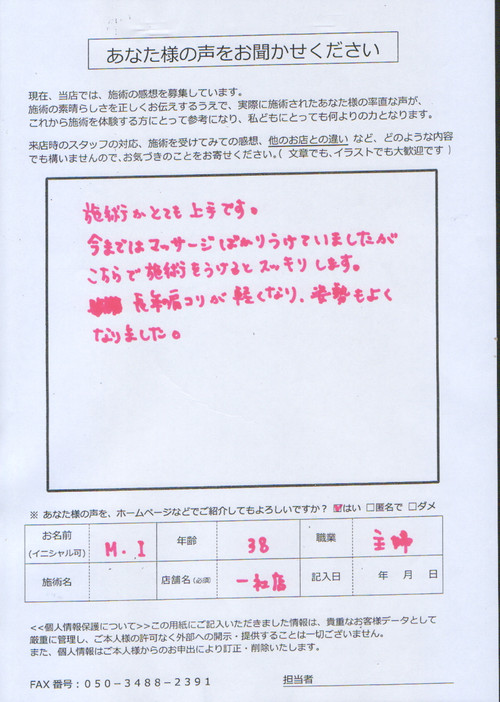 あなた様の声をお聞かせください
現在、当店では、施術の感想を募集しています。
施術の素晴らしさを正しくお伝えするうえで、実際に施術されたあなた様の率直な声が、
これから施術を体験する方にとって参考になり、私どもにとっても何よりの力となります。
来店時のスタッフの対応、施術を受けてみての感想、他のお店との違い など、どのような内容
でも構いませんので、お気づきのことをお寄せください。( 文章でも、イラストでも大歓迎です )
施術がとても上手です。
今まではマッサージばかりうけていましたが
こちらで施術をうけるとスッキリします。
長年肩コリが軽くなり、姿勢もよく
なりました。
※ あなた様の声を、ホームページなどでご紹介してもよろしいですか? ☑はい □匿名で □ダメ
お名前 (イニシャル可) M.I 年齢 38 職業 主婦
施術名 店舗名 (必須) 一社店 記入日 年 月 日
<<個人情報保護について>>この用紙にご記入いただきました情報は、貴重なお客様データとして
厳重に管理し、ご本人様の許可なく外部への開示・提供することは一切ございません。
また、個人情報はご本人様からのお申出により訂正・削除いたします。
FAX 番号:050-3488-2391 担当者